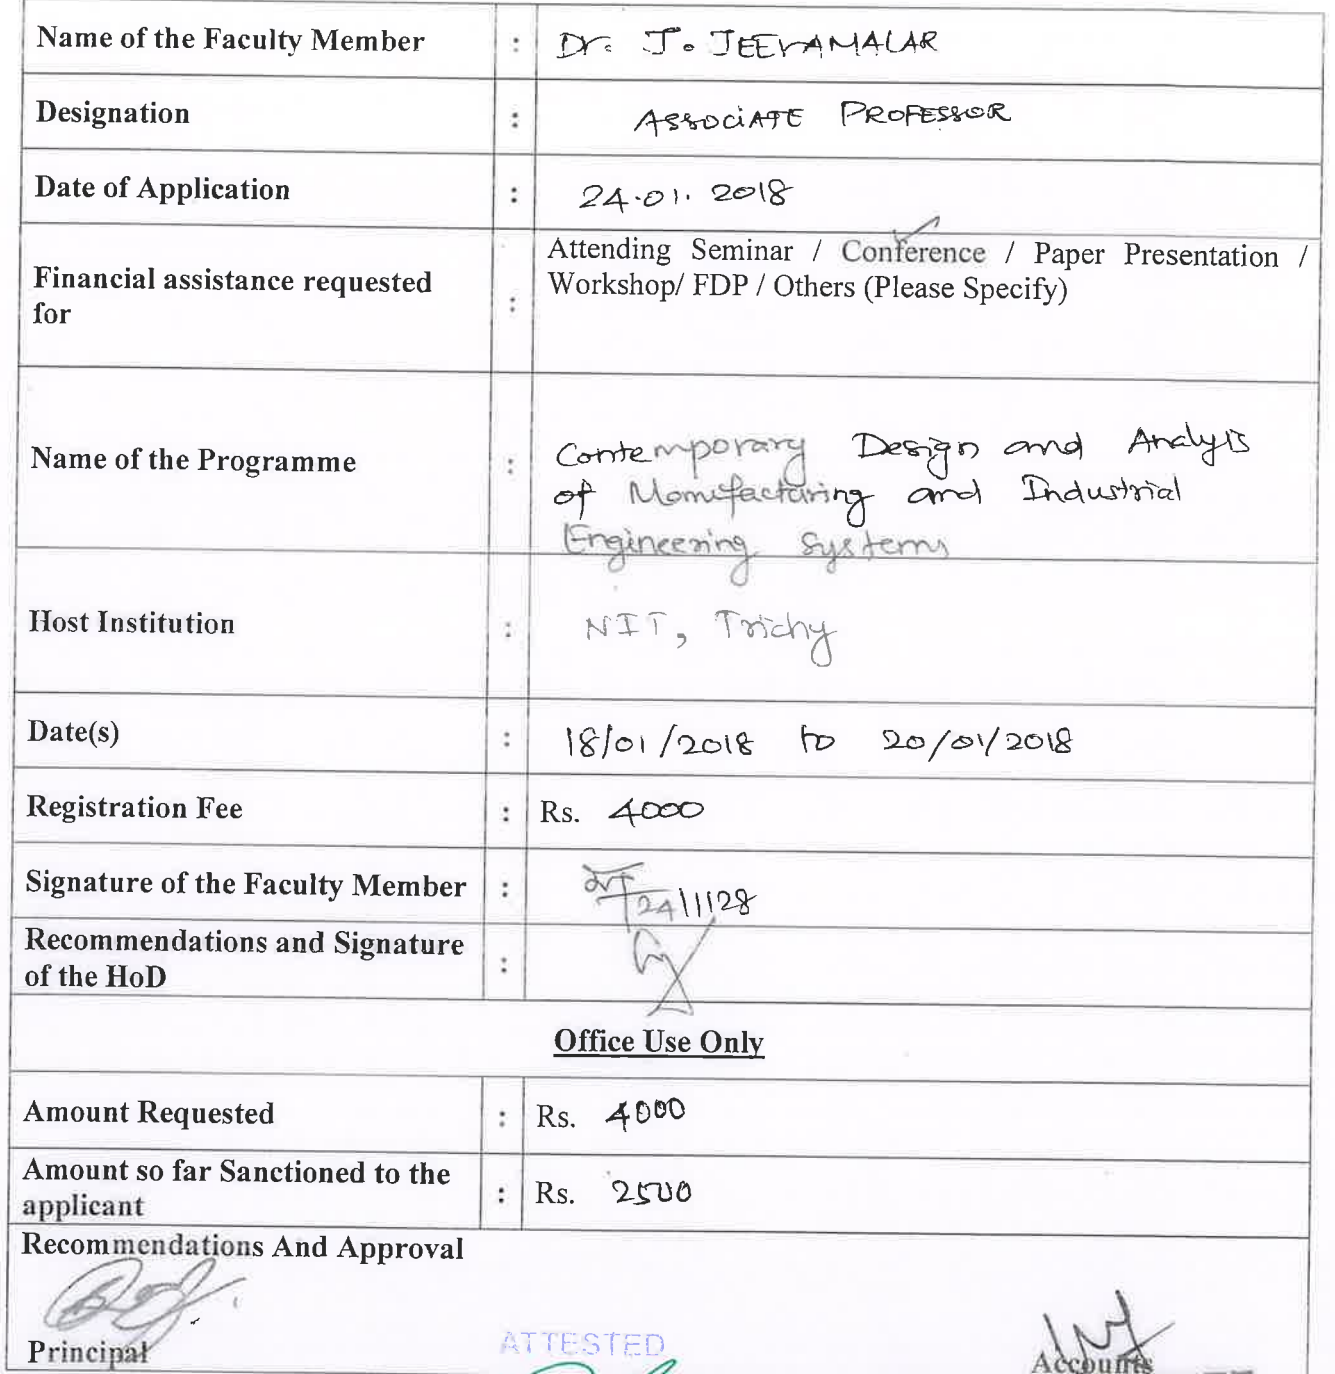 Name of the Faculty Member : Dr. J. JEEVAMALAR
Designation : ASSOCIATE PROFESSOR
Date of Application : 24.01.2018
Financial assistance requested
for
: Attending Seminar / Conference / Paper Presentation /
Workshop/ FDP / Others (Please Specify)
Name of the Programme : Contemporary Design and Analyis
of Manufacturing and Industrial
Engineering Systems
Host Institution : NIT, Trichy
Date(s) : 18/01/2018 to 20/01/2018
Registration Fee : Rs. 4000
Signature of the Faculty Member : 24/1/128
Recommendations and Signature
of the HoD :
Office Use Only
Amount Requested : Rs. 4000
Amount so far Sanctioned to the
applicant : Rs. 2500
Recommendations And Approval
Principal ATTESTED Accounts